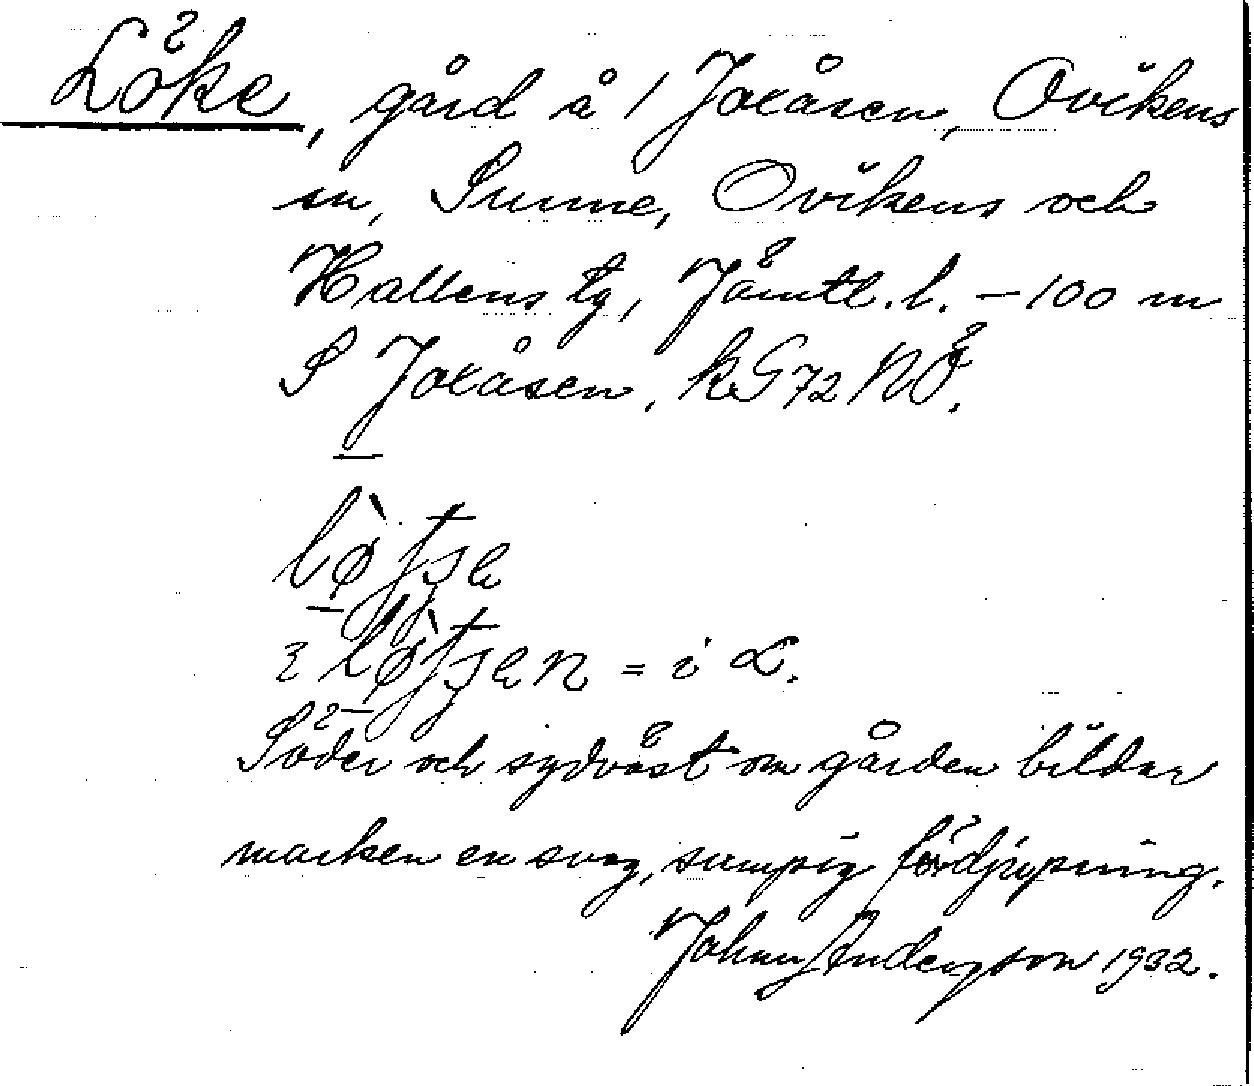 Löke, gård å 1 Joxåsen, Ovikens
sn, Sunne, Ovikens och
Hallens tg, Jämtl. l. – 100 m
S Joxåsen. kG72NÖ.
= i L.
Söder och sydväst om gården bildar
marken en svag, sumpig fördjupning.
Johan Anderson 1932.